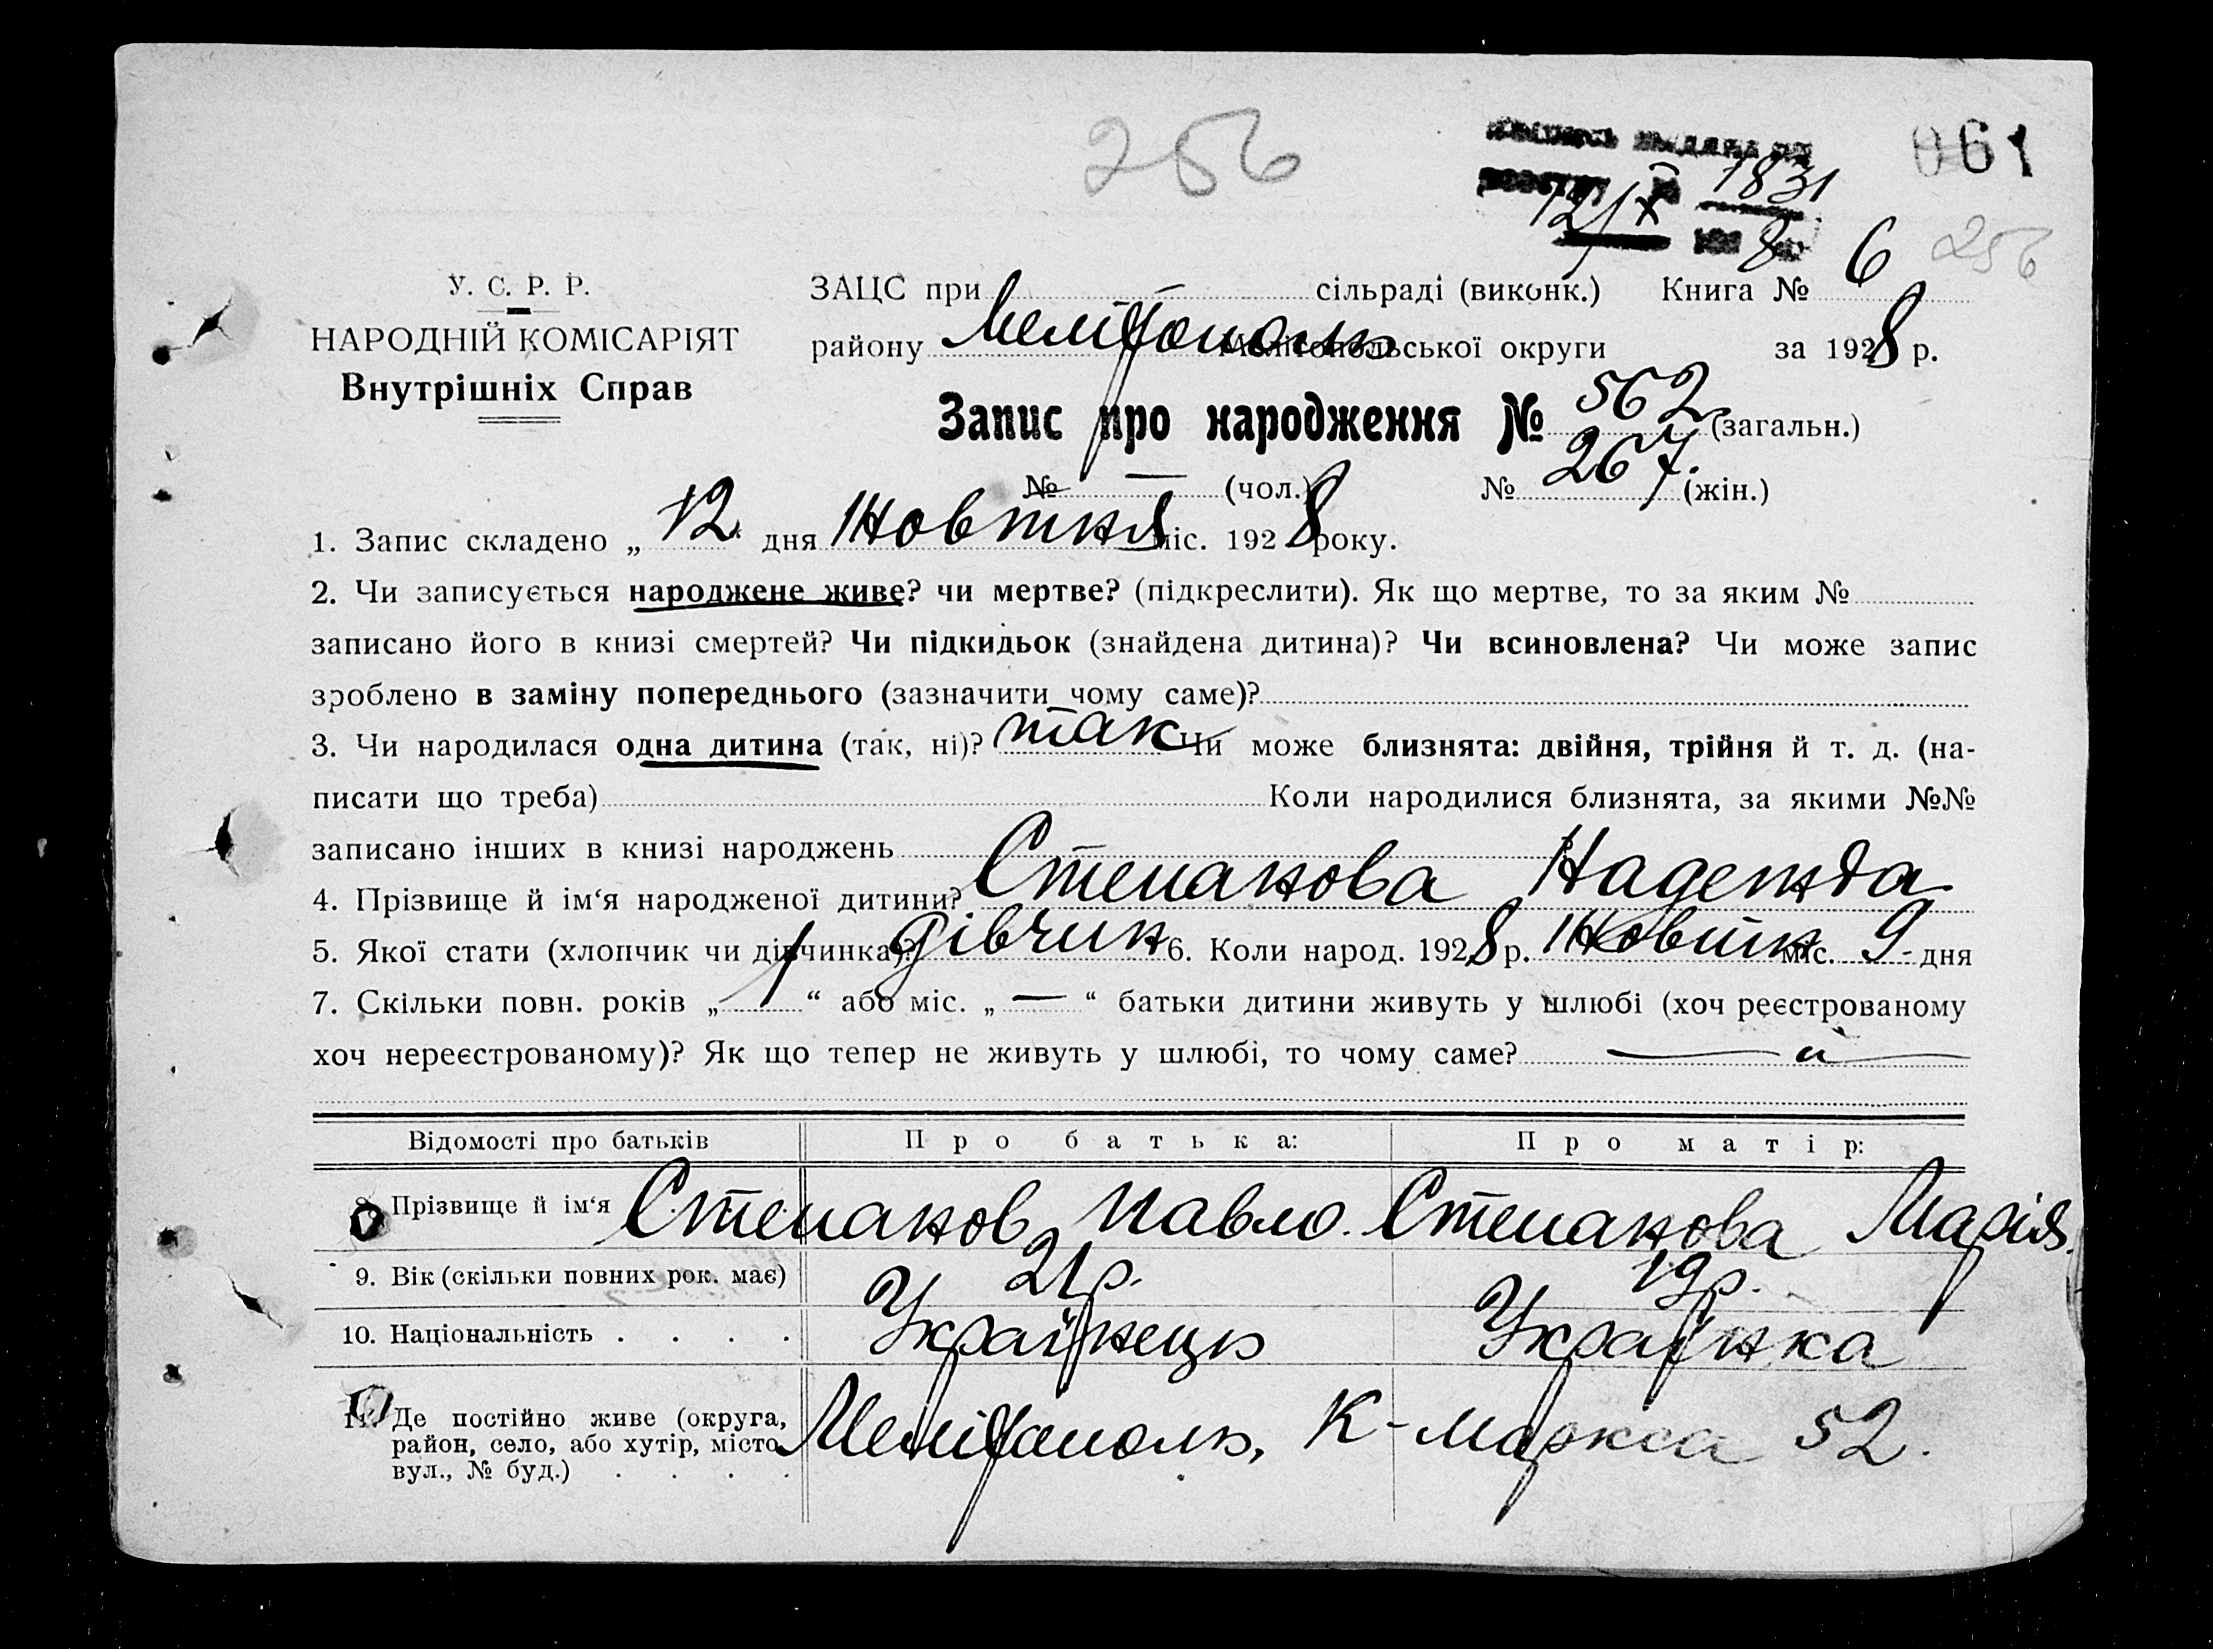 256
061
1831
12/X
8
256
У. С. Р. Р.
НАРОДНІЙ КОМІСАРІЯТ
Внутрішніх Справ
ЗАЦС при сільраді (виконк.) Книга № 6
району Мелітополь Мелітопольської округи за 1928 р.
Запис про народження № 562 (загальн.)
№ — (чол.) № 267. (жін.)
1. Запис складено „ 12 дня Жовтня міс. 1928 року.
2. Чи записується народжене живе? чи мертве? (підкреслити). Як що мертве, то за яким №
записано його в книзі смертей? Чи підкидьок (знайдена дитина)? Чи всиновлена? Чи може запис
зроблено в заміну попереднього (зазначити чому саме)?
3. Чи народилася одна дитина (так, ні)? так Чи може близнята: двійня, трійня й т. д. (на-
писати що треба) Коли народилися близнята, за якими №№
записано інших в книзі народжень
4. Прізвище й ім‘я народженої дитини? Степанова Надежда
5. Якої стати (хлопчик чи дівчинка)? дівчин 6. Коли народ. 1928 р. Жовтн міс. 9 дня
7. Скільки повн. років „ 1 “ або міс. „ — “ батьки дитини живуть у шлюбі (хоч реєстрованому
хоч нереєстрованому)? Як що тепер не живуть у шлюбі, то чому саме?
Відомості про батьків Про батька: Про матір:
8. Прізвище й ім‘я Степанов Павло. Степанова Марія.
9. Вік (скільки повних рок. має) 21 р. 19 р.
10. Національність . . . . Українець Українка
11. Де постійно живе (округа,
район, село, або хутір, місто Мелітополь, К-Маркса 52.
вул., № буд.) . . . .